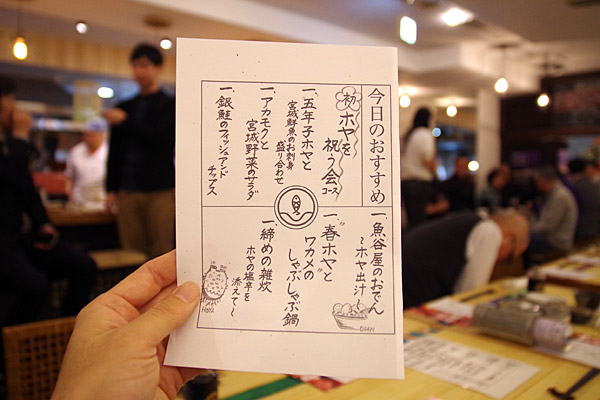 今日のおすすめ
祝 ホヤを
祝う会
コース
一、五年子ホヤと
宮城鮮魚のお刺身
盛り合わせ
一、アカモクと
宮城野菜のサラダ
一、銀鮭のフィッシュアンド
チップス
一、魚谷屋のおでん
〜ホヤ出汁〜
一、"春"ホヤと
ワカメの
しゃぶしゃぶ鍋
一、締めの雑炊
ホヤの塩辛を
添えて〜
HOYA
ODEN